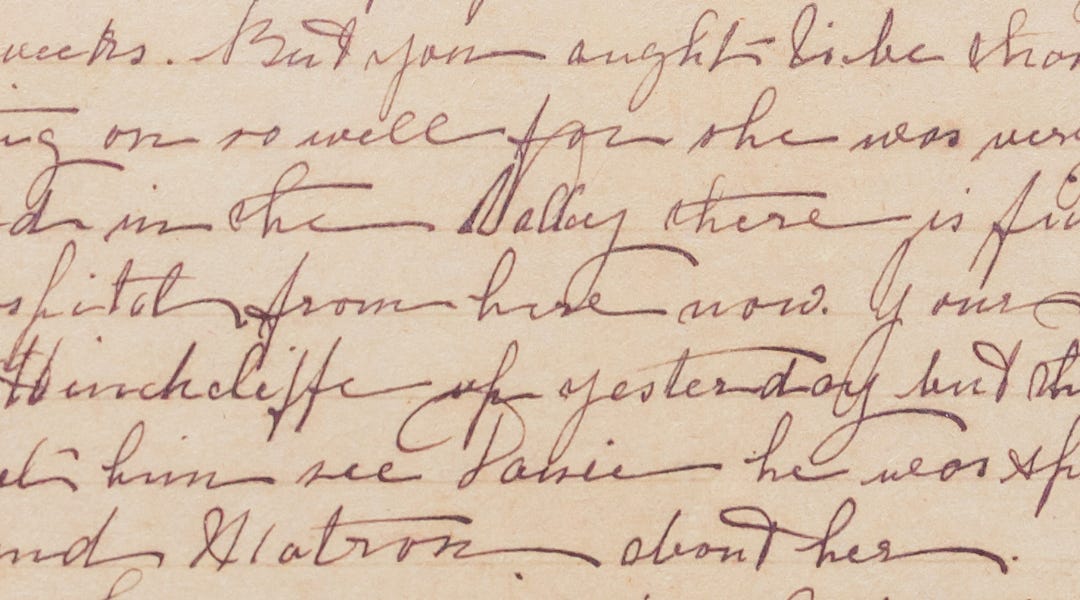 weeks. But you ought to be than
ing on so well for she was very
d in the Valley there is fiv
spital from here now. Your
Hinchcliffe up yesterday but th
let him see he was sp
and Matron. about her.